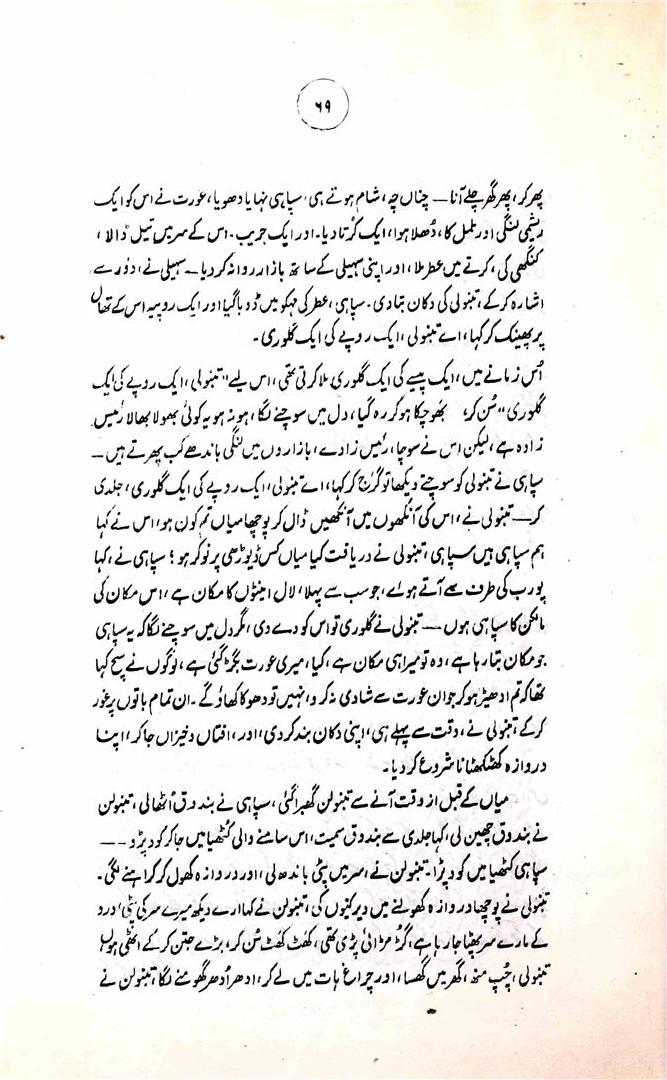 ۶۹
پھر کر، پھر گھر چلے آنا — چناں چہ، شام ہوتے ہی، سپاہی نہایا دھویا، عورت نے اس کو ایک
ریشمی لنگی اور ململ کا، دُھلا ہوا، ایک کُرتا دیا۔ اور ایک جریب۔ اس کے سر میں تیل ڈالا،
کنگھی کی، کرتے میں عطر ملا، اور اپنی سہیلی کے ساتھ بازار روانہ کر دیا — سہیلی نے، دوٗر سے
اشارہ کر کے، تنبولی کی دکان بتا دی۔ سپاہی، عطر کی مہکو میں ڈوبا گیا اور ایک روپیہ اس کے تھال
پر پھینک کر کہا، اے تنبولی، ایک روپے کی ایک گلوری۔
اُس زمانے میں، ایک پیسے کی ایک گلوری ملا کرتی تھی، اس لیے "تنبولی، ایک روپے کی ایک
گلوری" سُن کر، بھوچکا ہو کر رہ گیا، دل میں سوچنے لگا، ہو نہ ہو یہ کوئی بھولا بھالا رئیس
زادہ ہے، لیکن اس نے سوچا، رئیس زادے، بازاروں میں لنگی باندھے کب پھرتے ہیں —
سپاہی نے تنبولی کو سوچتے دیکھا تو گرج کر کہا، اے تنبولی، ایک روپے کی ایک گلوری، جلدی
کر — تنبولی نے، اس کی آنکھوں میں آنکھیں ڈال کر پوچھا میاں تم کون ہو، اس نے کہا
ہم سپاہی ہیں سپاہی، تنبولی نے دریافت کیا میاں کس ڈیوڑھی پر نوکر ہو؟ سپاہی نے، کہا
پورب کی طرف سے آتے ہوے، جو سب سے پہلا، لال اینٹوں کا مکان ہے، اس مکان کی
مالکن کا سپاہی ہوں — تنبولی نے گلوری تو اس کو دے دی، مگر دل میں سوچنے لگا کہ یہ سپاہی
جو مکان بتا رہا ہے، وہ تو میرا ہی مکان ہے، کیا، میری عورت بگڑ گئی ہے، لوگوں نے سچ کہا
تھا کہ تم ادھیڑ ہو کر جوان عورت سے شادی نہ کرو، نہیں تو دھوکا کھاؤ گے۔ ان تمام باتوں پر غور
کر کے، تنبولی نے، وقت سے پہلے ہی، اپنی دکان بند کر دی، اور، افتاں و خیزاں جا کر، اپنا
دروازہ کھٹکھٹانا شروع کر دیا۔
میاں کے قبل از وقت آنے سے تنبولن گھبرا گئی، سپاہی نے بندوق اُٹھالی، تنبولن
نے بندوق چھین لی، کہا جلدی سے بندوق سمیت، اس سامنے والی کُٹھیا میں جا کر کود پڑو — —
سپاہی کٹھیا میں کود پڑا۔ تنبولن نے، سر میں پٹی باندھ لی، اور دروازہ کھول کر کراہنے لگی۔
تنبولی نے پوچھا دروازہ کھولنے میں دیر کیوں کی، تنبولن نے کہا ارے دیکھ میرے سر کی پٹی، درد
کے مارے سر پھٹا جا رہا ہے، گڑ مڑائی پڑی تھی، کھٹ کھٹ سُن کر، بڑے جتن کر کے اٹھی ہوں
تنبولی، چُپ منھ، گھر میں گھسا، اور چراغ ہات میں لے کر، ادھر اُدھر گھومنے لگا، تنبولن نے